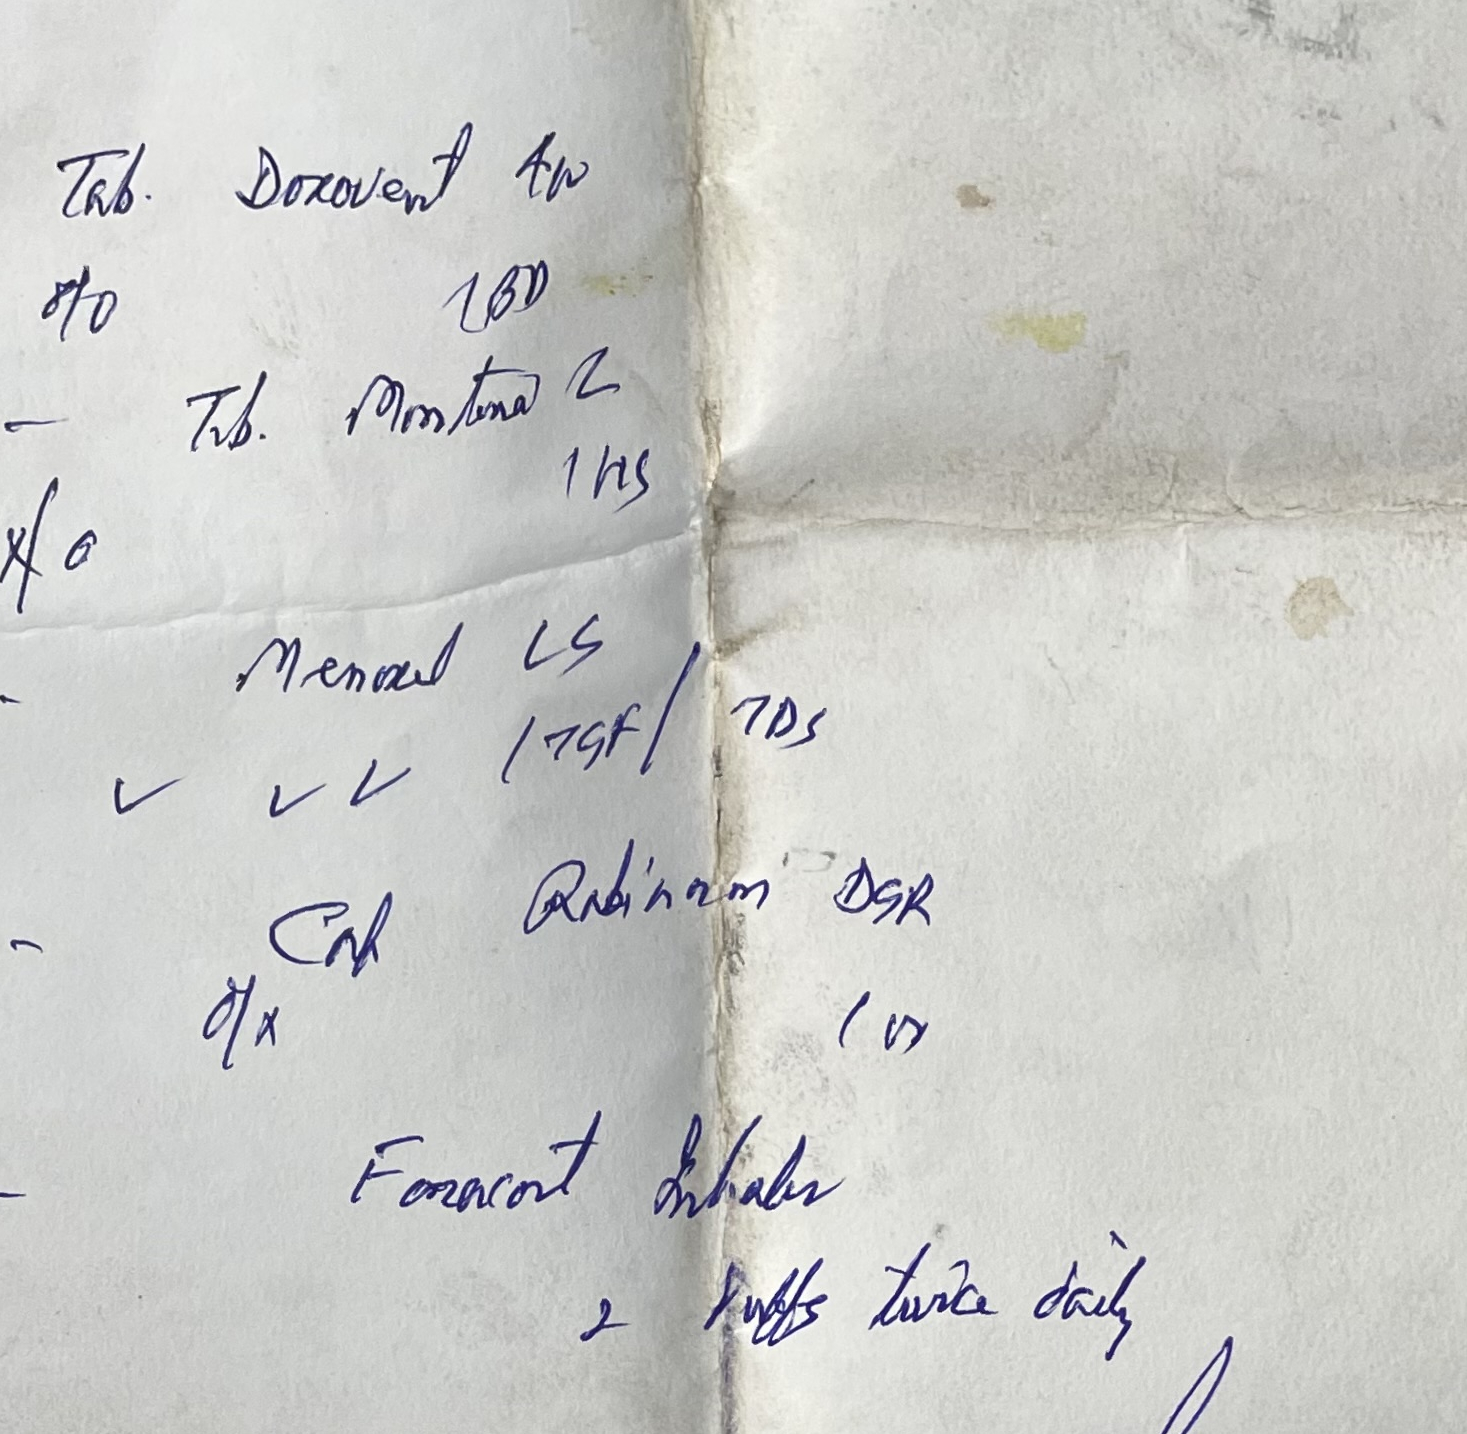 Tab. Doxovent 400
1 BD
Tab. Montina L
1 HS
x/o
Menoxel LS
1 TSF / TDS
Cap Rabinom DSR
o/x
1
Foracort Inhaler
2 Puffs twice daily